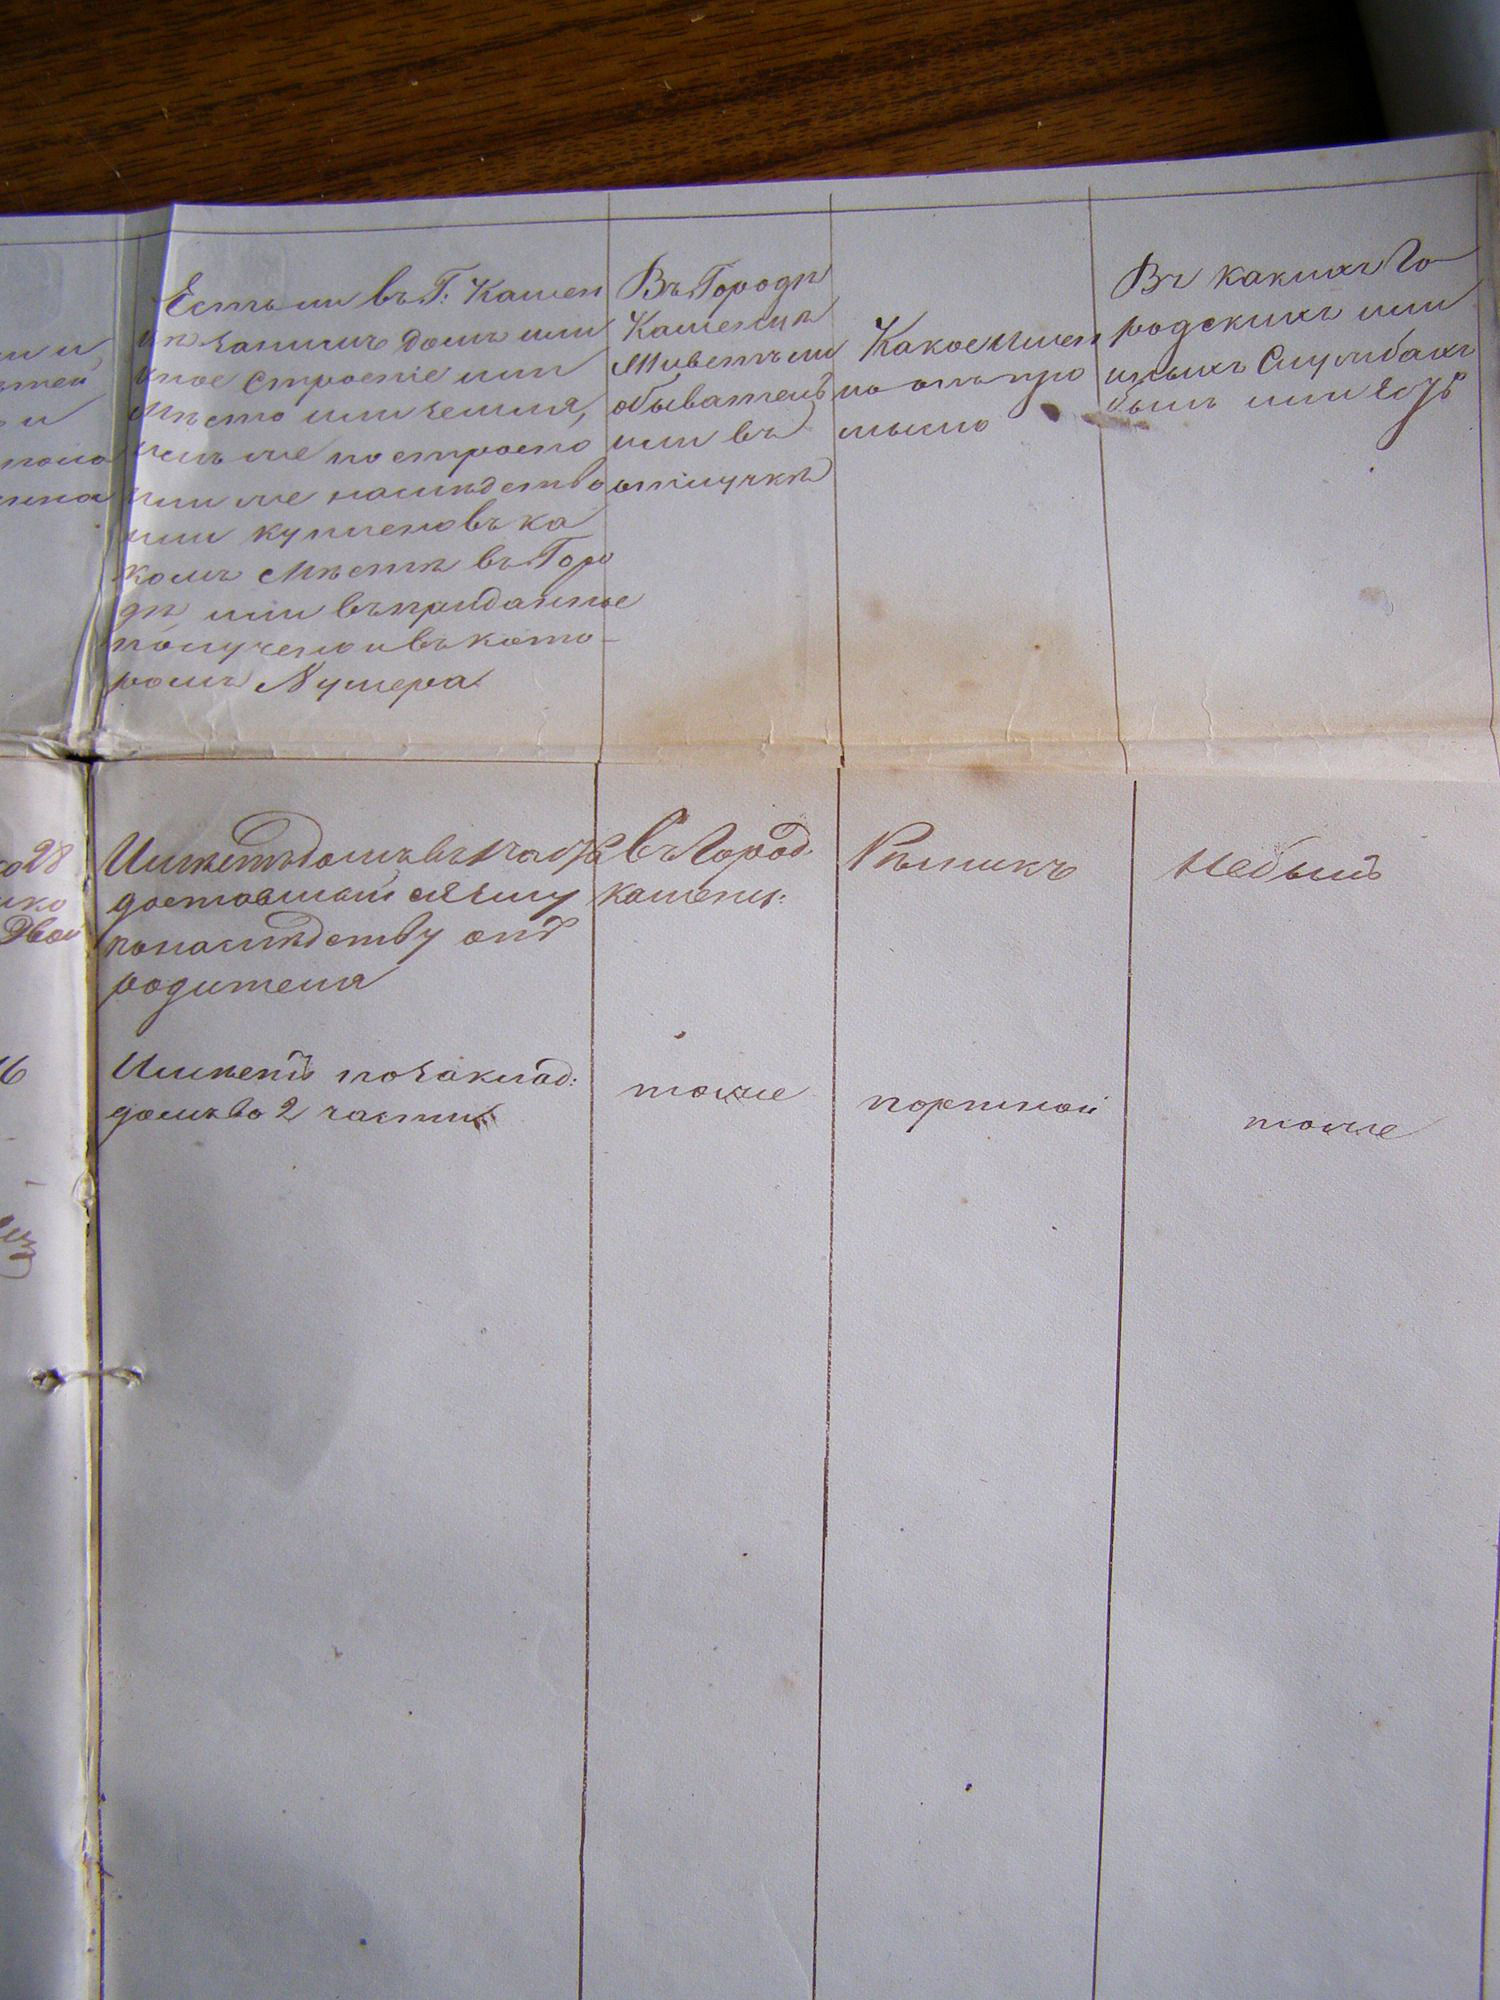 Есть ли въ Г: Кашен
кѣ за ним домъ или
иное строеніе или
Мѣсто или земля,
имъ же построено
или же наслѣдство
или куплено въ ка
комъ Мѣсте въ Горо
дѣ или въ приданное
получено и въ кото-
ромъ Нумера
Въ Городѣ
Кашенкѣ
Живетъ ли
обыватель
или въ
отлучкѣ
Какое имен
но онъ про
мысло
Въ какихъ Го
родскихъ или
иныхъ Службахъ
былъ или есть
28
Имѣетъ домъ въ
доставшыйся ему
по наслѣдству отъ
родителя
въ Город.
кашенк:
Рѣзникъ
небылъ
Имѣетъ по заклад:
домъ во 2 части
тоже
портной
тоже